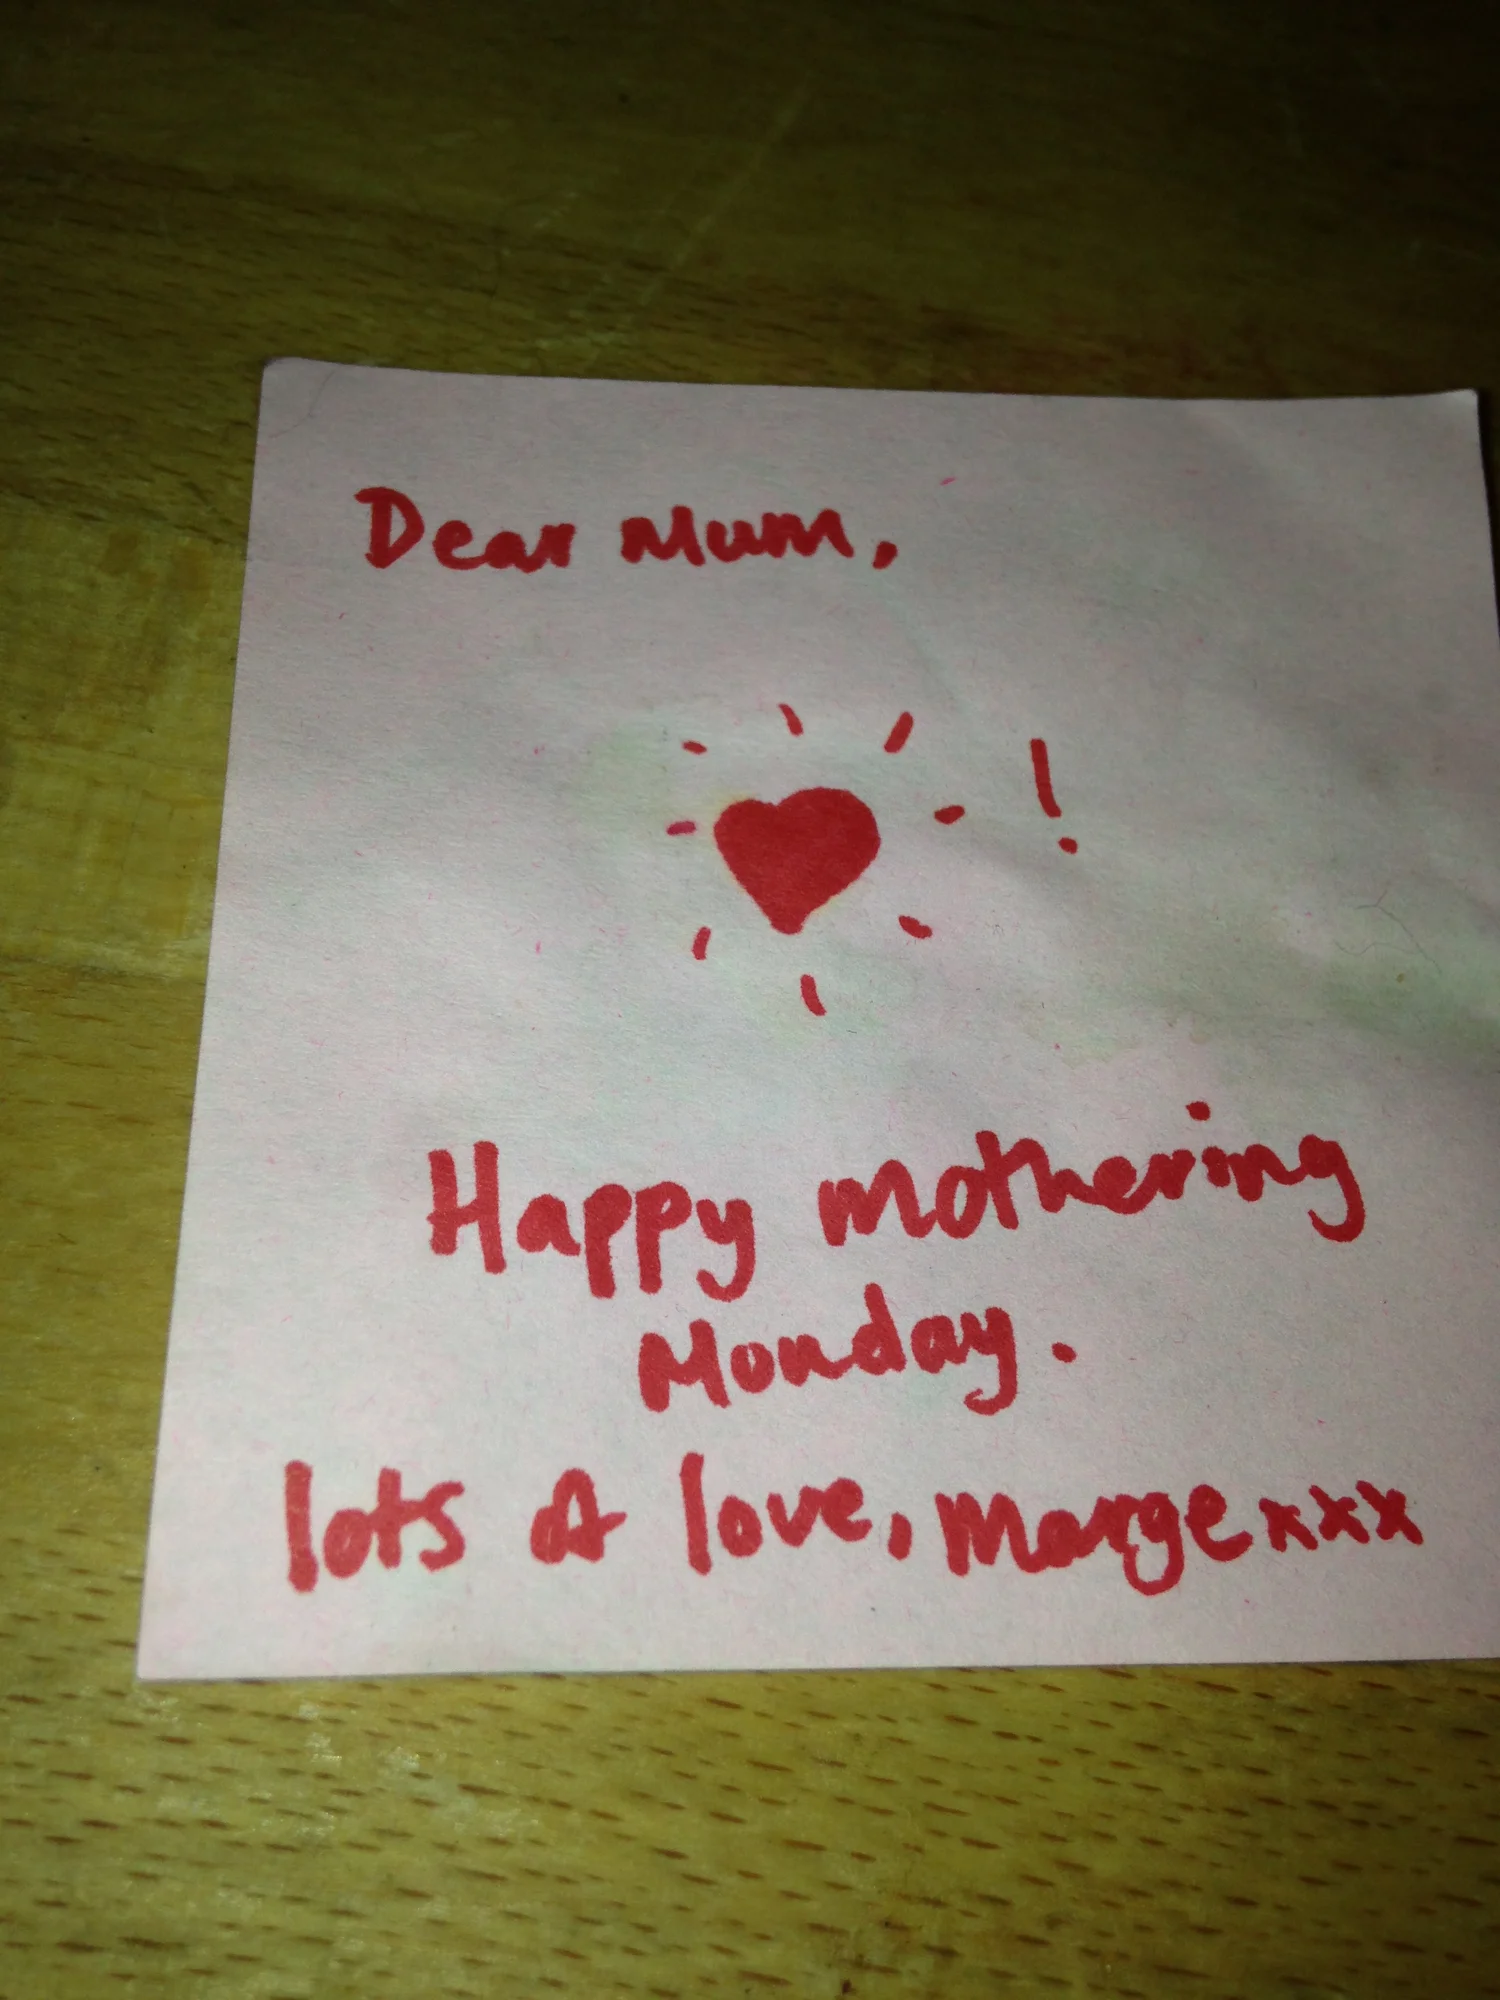 Dear Mum,
!
Happy mothering
Monday.
lots A love, Marge xxx